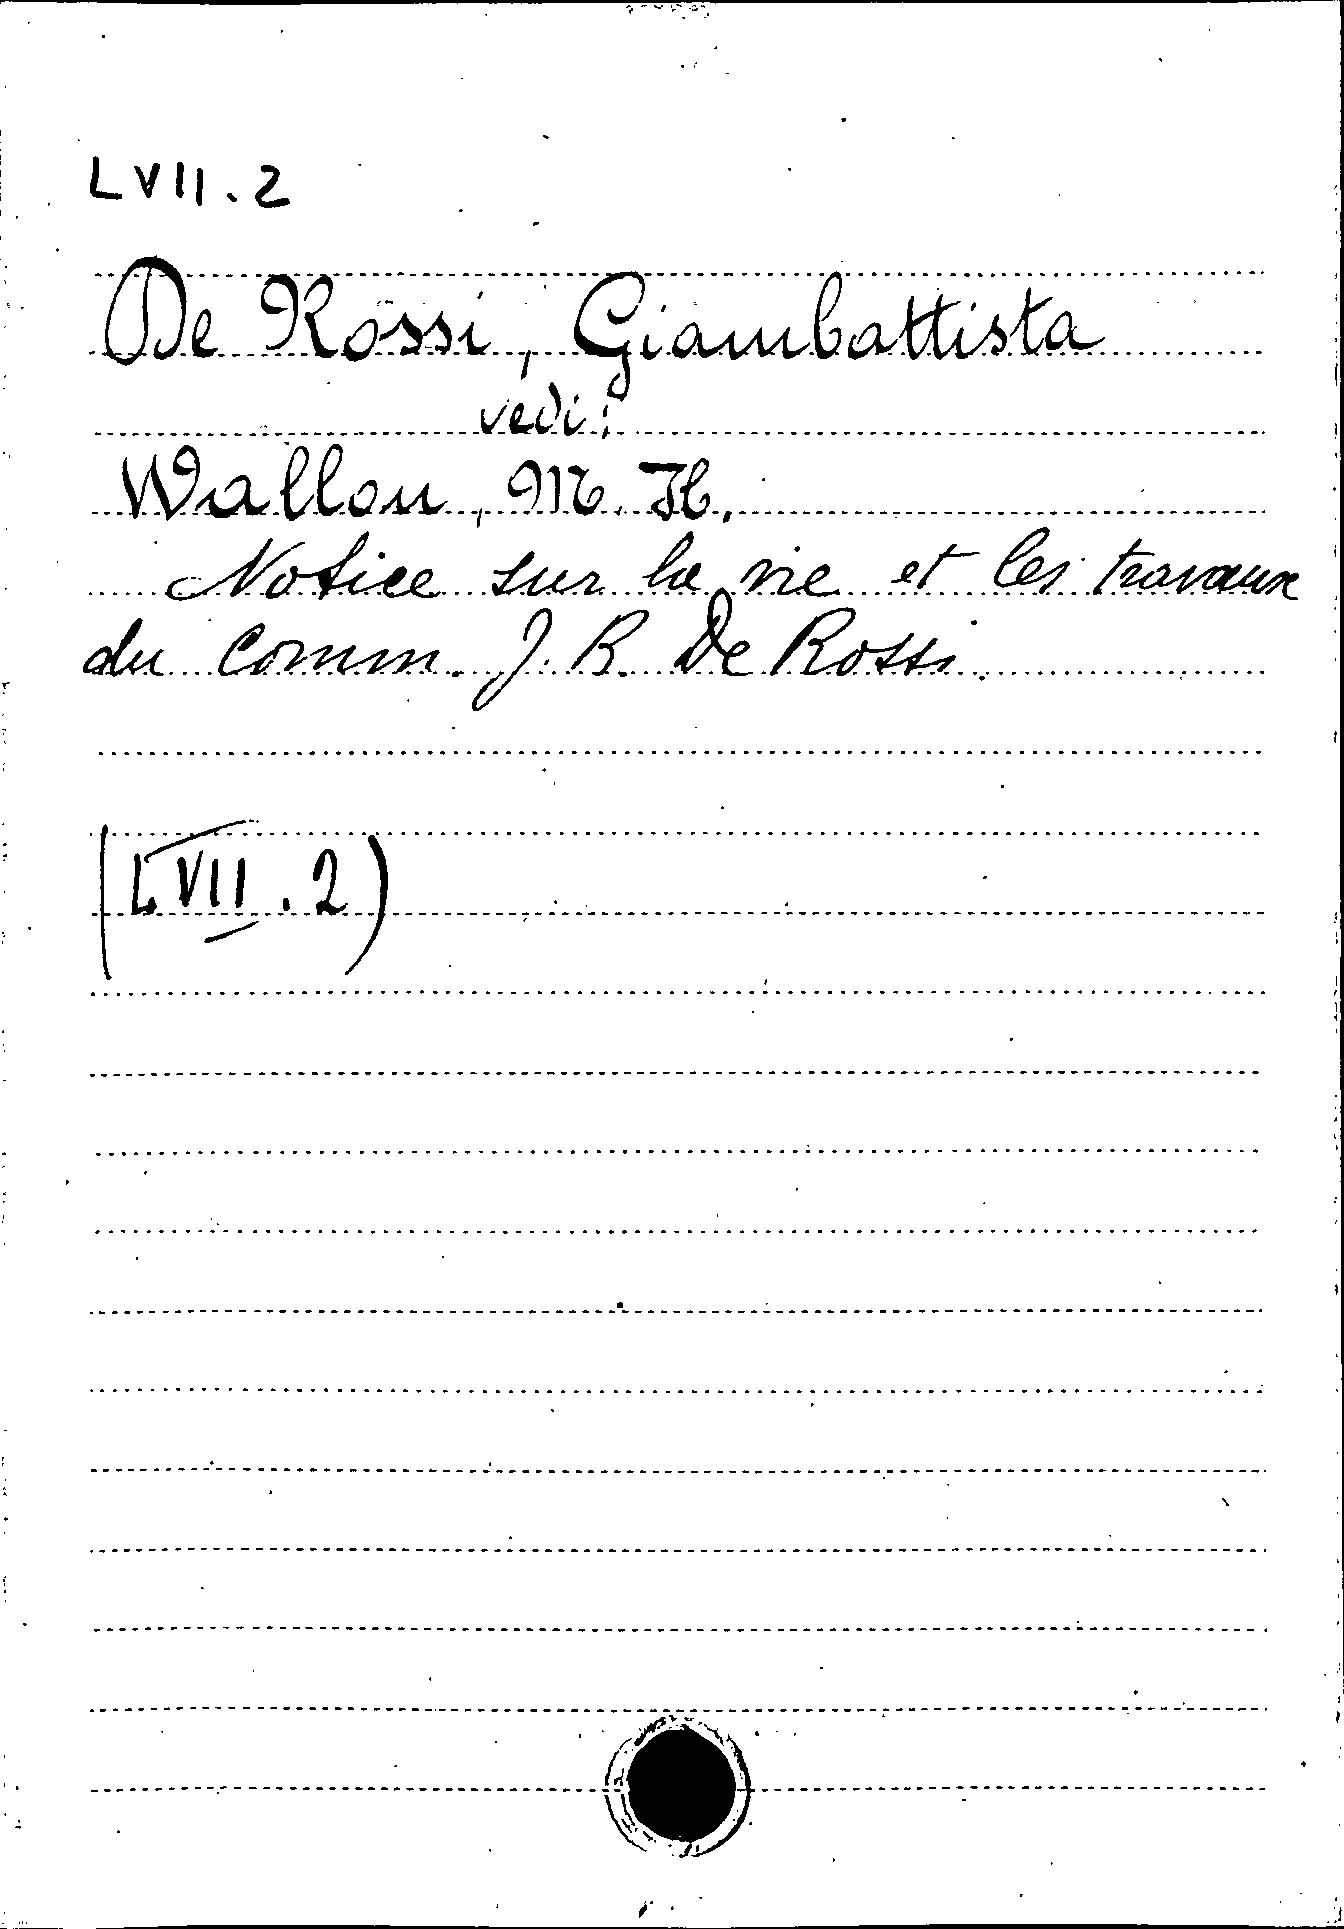 LVII.2
De Rossi, Giambattista
vedi:
Wallon, M. H.
Notice sur la vie et les travaux
du Comm. J. B. De Rossi.
(LVII.2)